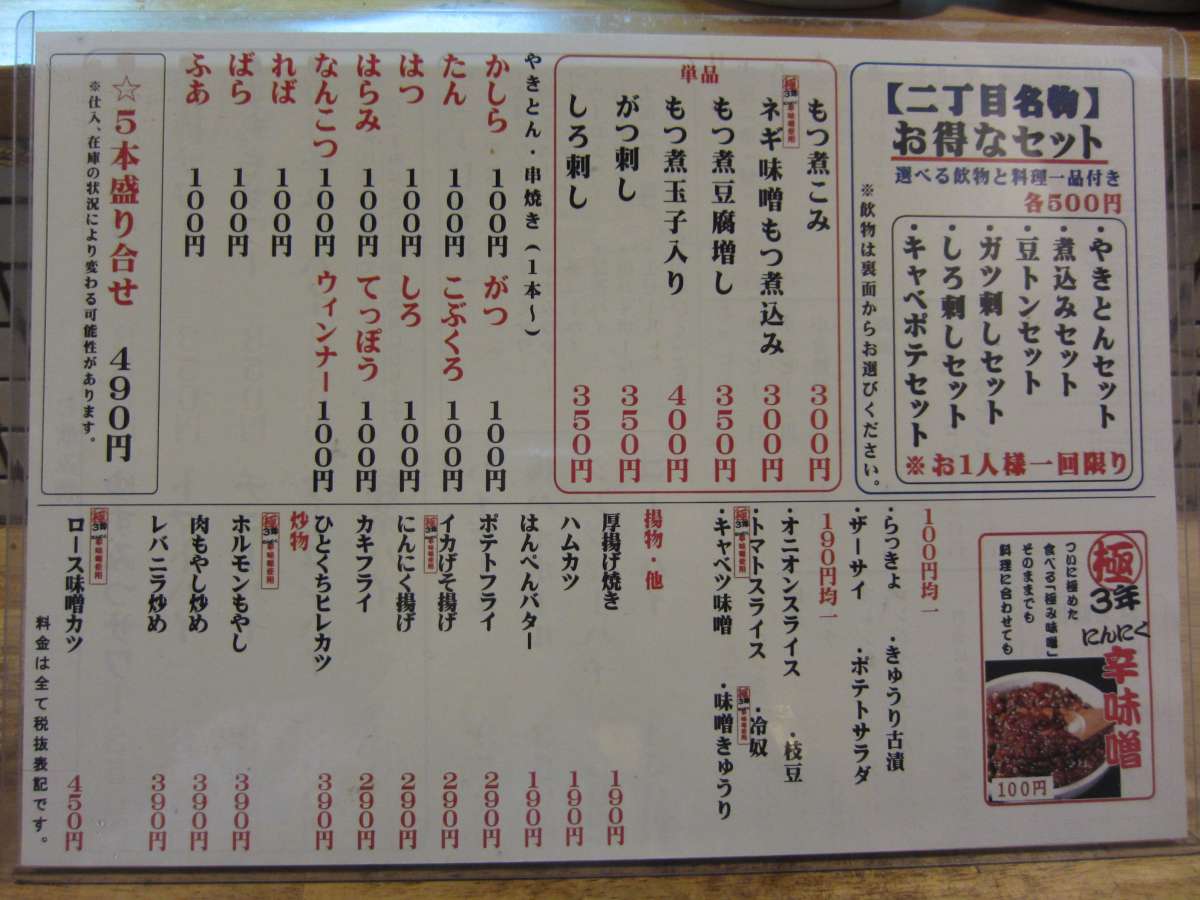 【二丁目名物】
お得なセット
選べる飲物と料理一品付き
各500円
・やきとんセット
・煮込みセット
・豆トンセット
・ガツ刺しセット
・しろ刺しセット
・キャベポテセット
※お1人様一回限り
※飲物は裏面からお選びください。
単品
もつ煮こみ 300円
ネギ味噌もつ煮込み 300円
もつ煮豆腐増し 350円
もつ煮玉子入り 400円
がつ刺し 350円
しろ刺し 350円
やきとん・串焼き(1本~)
かしら 100円 がつ 100円
たん 100円 こぶくろ 100円
はつ 100円 しろ 100円
はらみ 100円 てっぽう 100円
なんこつ 100円 ウィンナー 100円
れば 100円
ばら 100円
ふあ 100円
☆5本盛り合せ 490円
※仕入、在庫の状況により変わる可能性があります。
極
3年
にんにく
辛味噌
ついに極めた
食べる「極み味噌」
そのままでも
料理に合わせても
100円
100円均一
・らっきょ ・きゅうり古漬
・ザーサイ ・ポテトサラダ
190円均一
・オニオンスライス ・枝豆
・トマトスライス ・冷奴
・キャベツ味噌 ・味噌きゅうり
揚物・他
厚揚げ焼き 190円
ハムカツ 190円
はんぺんバター 190円
ポテトフライ 290円
イカげそ揚げ 290円
にんにく揚げ 290円
カキフライ 290円
ひとくちヒレカツ 390円
炒物
ホルモンもやし 390円
肉もやし炒め 390円
レバニラ炒め 390円
ロース味噌カツ 450円
料金は全て税抜表記です。